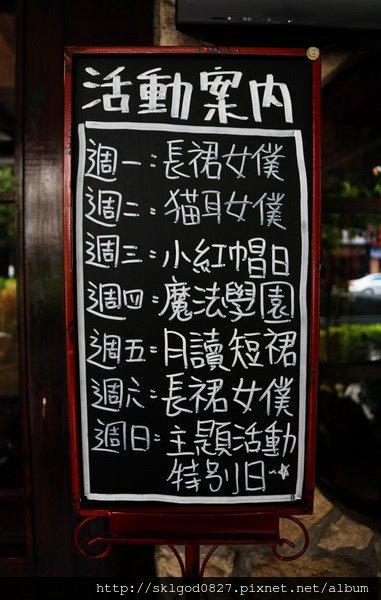 活動案內
週一:長裙女僕
週二:猫耳女僕
週三:小紅帽日
週四:魔法學園
週五:月讀短裙
週六:長裙女僕
週日:主題活動
特別日~☆
http://sklgod0827.pixnet.net/album